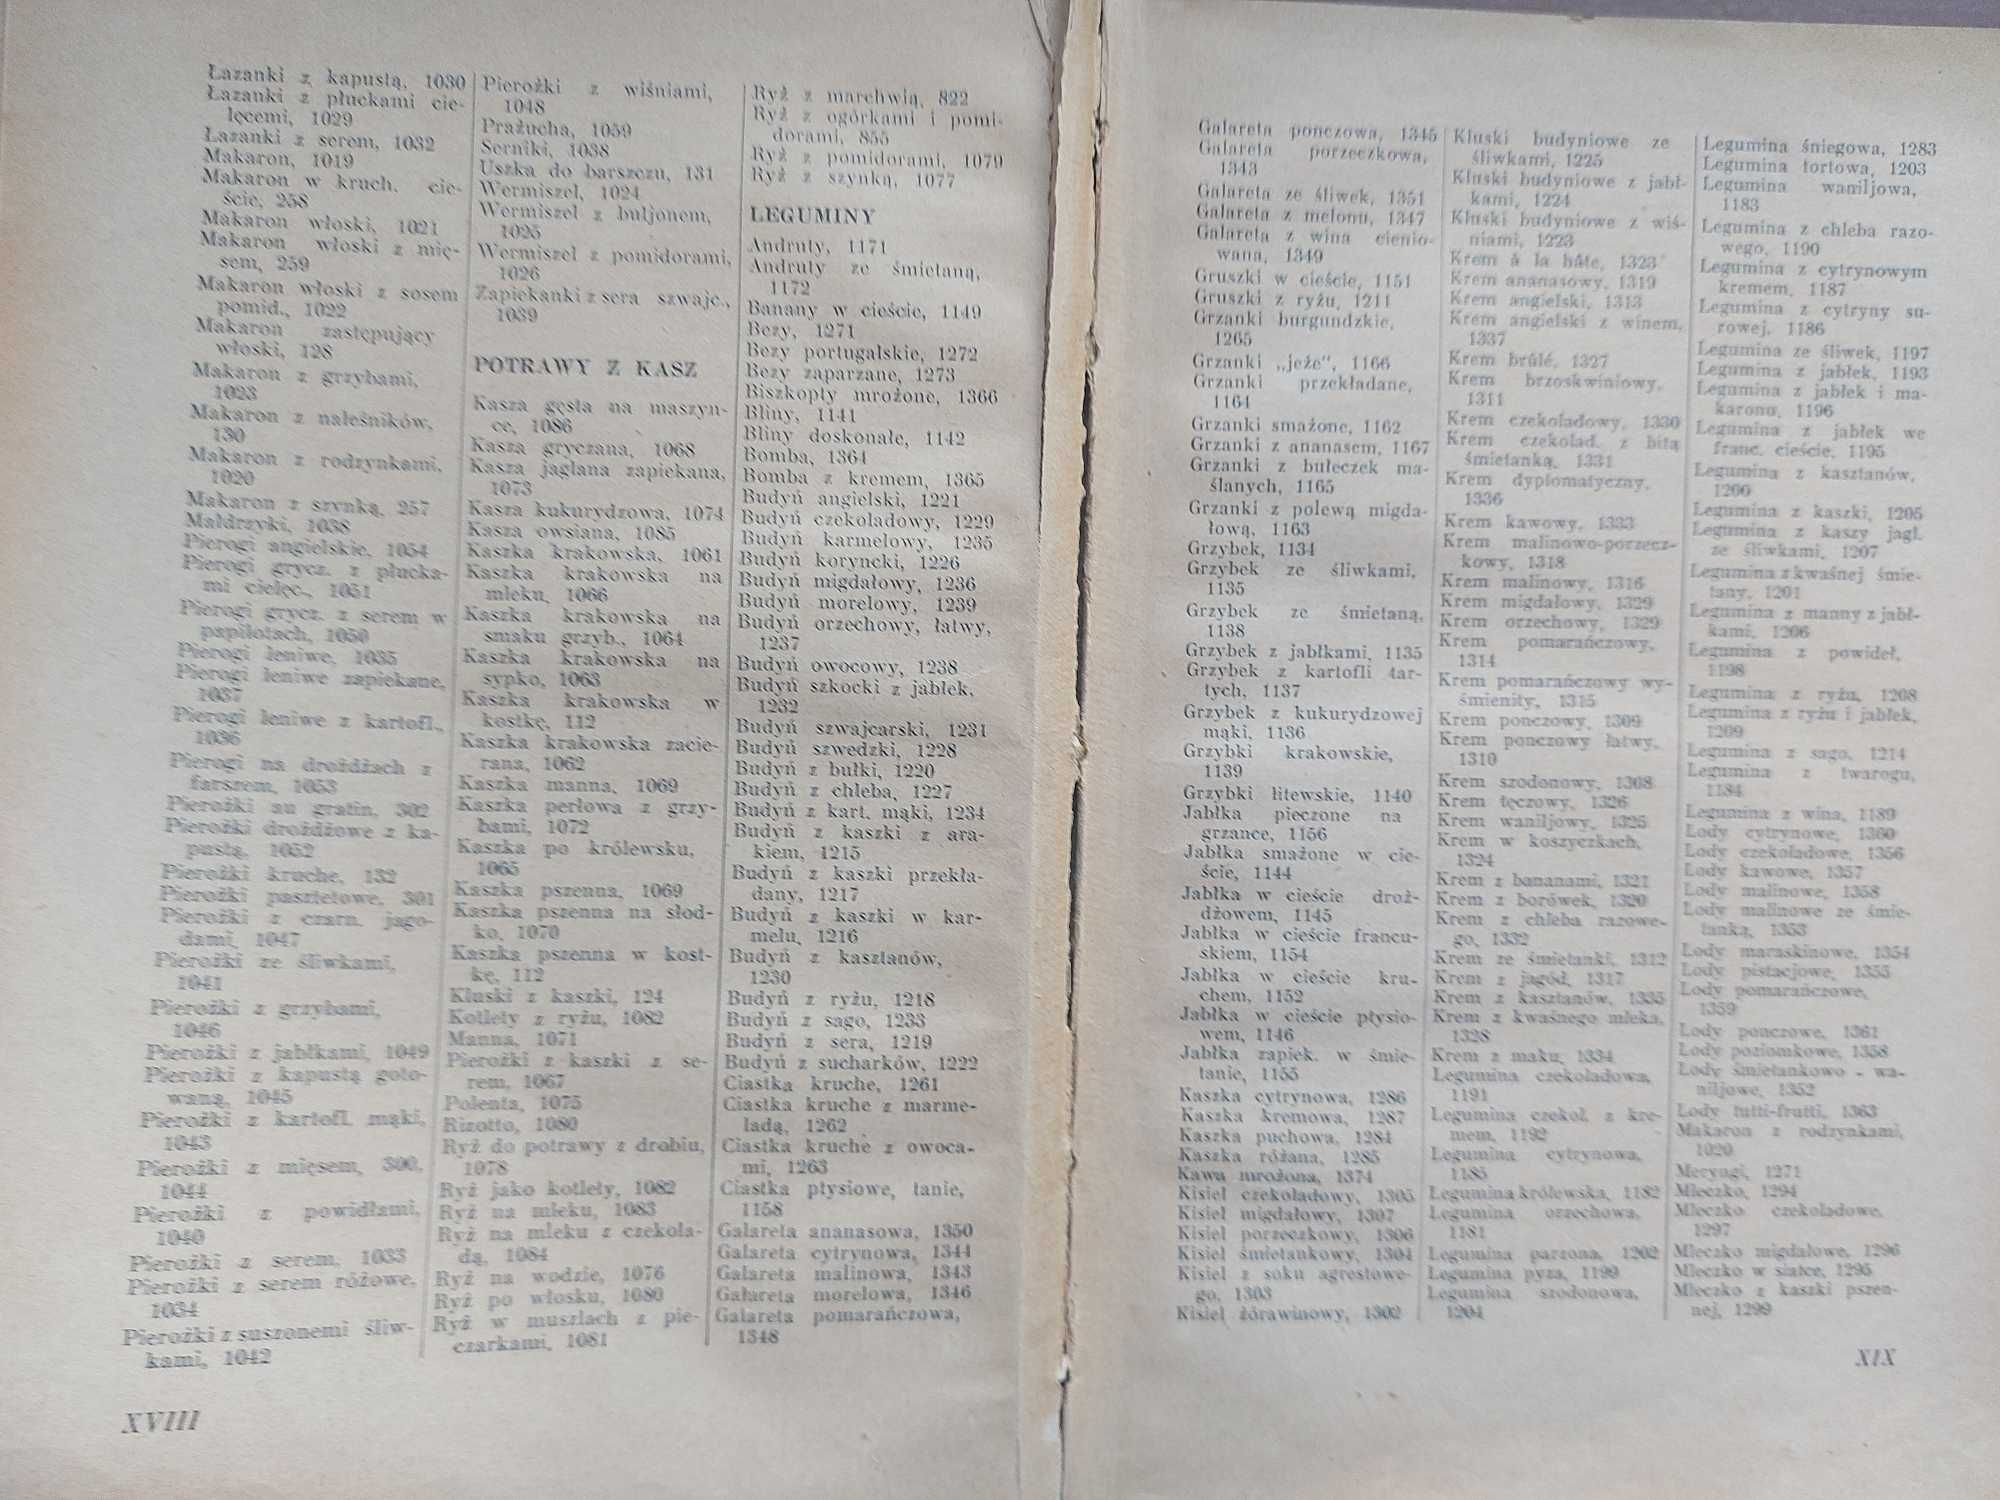 Łazanki z kapustą, 1030
Łazanki z płuckami cie-
lęcemi, 1029
Łazanki z serem, 1032
Makaron, 1019
Makaron w kruch. cie-
ście, 258
Makaron włoski, 1021
Makaron włoski z mię-
sem, 259
Makaron włoski z sosem
pomid., 1022
Makaron zastępujący
włoski, 128
Makaron z grzybami,
1023
Makaron z naleśników,
130
Makaron z rodzynkami,
1020
Makaron z szynką, 257
Małdrzyki, 1038
Pierogi angielskie, 1054
Pierogi grycz. z płucka-
mi cielęc., 1051
Pierogi grycz. z serem w
papilotach, 1050
Pierogi leniwe, 1035
Pierogi leniwe zapiekane,
1037
Pierogi leniwe z kartofl.,
1036
Pierogi na drożdżach z
farszem, 1053
Pierożki au gratin, 302
Pierożki drożdżowe z ka-
pustą, 1052
Pierożki kruche, 132
Pierożki pasztetowe, 301
Pierożki z czarn. jago-
dami, 1047
Pierożki ze śliwkami,
1041
Pierożki z grzybami,
1046
Pierożki z jabłkami, 1049
Pierożki z kapustą goto-
waną, 1045
Pierożki z kartofl. mąki,
1043
Pierożki z mięsem, 300,
1044
Pierożki z powidłami,
1040
Pierożki z serem, 1033
Pierożki z serem różowe,
1034
Pierożki z suszonemi śliw-
kami, 1042
XVIII
Pierożki z wiśniami,
1048
Prażucha, 1059
Serniki, 1038
Uszka do barszczu, 131
Wermiszel, 1024
Wermiszel z buljonem,
1025
Wermiszel z pomidorami,
1026
Zapiekanki z sera szwajc.,
1039
POTRAWY Z KASZ
Kasza gęsta na maszyn-
ce, 1086
Kasza gryczana, 1068
Kasza jaglana zapiekana,
1073
Kasza kukurydzowa, 1074
Kasza owsiana, 1085
Kaszka krakowska, 1061
Kaszka krakowska na
mleku, 1066
Kaszka krakowska na
smaku grzyb., 1064
Kaszka krakowska na
sypko, 1063
Kaszka krakowska w
kostkę, 112
Kaszka krakowska zacie-
rana, 1062
Kaszka manna, 1069
Kaszka perłowa z grzy-
bami, 1072
Kaszka po królewsku,
1065
Kaszka pszenna, 1069
Kaszka pszenna na słod-
ko, 1070
Kaszka pszenna w kost-
kę, 112
Kluski z kaszki, 124
Kotlety z ryżu, 1082
Manna, 1071
Pierożki z kaszki z se-
rem, 1067
Polenta, 1075
Rizotto, 1080
Ryż do potrawy z drobiu,
1078
Ryż jako kotlety, 1082
Ryż na mleku, 1083
Ryż na mleku z czekola-
dą, 1084
Ryż na wodzie, 1076
Ryż po włosku, 1080
Ryż w muszlach z pie-
czarkami, 1081
Ryż z marchwią, 822
Ryż z ogórkami i pomi-
dorami, 855
Ryż z pomidorami, 1079
Ryż z szynką, 1077
LEGUMINY
Andruty, 1171
Andruty ze śmietaną,
1172
Banany w cieście, 1149
Bezy, 1271
Bezy portugalskie, 1272
Bezy zaparzane, 1273
Biszkopty mrożone, 1366
Bliny, 1141
Bliny doskonałe, 1142
Bomba, 1364
Bomba z kremem, 1365
Budyń angielski, 1221
Budyń czekoladowy, 1229
Budyń karmelowy, 1235
Budyń koryncki, 1226
Budyń migdałowy, 1236
Budyń morelowy, 1239
Budyń orzechowy, łatwy,
1237
Budyń owocowy, 1238
Budyń szkocki z jabłek,
1232
Budyń szwajcarski, 1231
Budyń szwedzki, 1228
Budyń z bułki, 1220
Budyń z chleba, 1227
Budyń z kart. mąki, 1234
Budyń z kaszki z ara-
kiem, 1215
Budyń z kaszki przekła-
dany, 1217
Budyń z kaszki w kar-
melu, 1216
Budyń z kasztanów,
1230
Budyń z ryżu, 1218
Budyń z sago, 1233
Budyń z sera, 1219
Budyń z sucharków, 1222
Ciastka kruche, 1261
Ciastka kruche z marme-
ladą, 1262
Ciastka kruche z owoca-
mi, 1263
Ciastka ptysiowe, tanie,
1158
Galareta ananasowa, 1350
Galareta cytrynowa, 1344
Galareta malinowa, 1343
Galareta morelowa, 1346
Galareta pomarańczowa,
1348
Galareta ponczowa, 1345
Galareta porzeczkowa,
1343
Galareta ze śliwek, 1351
Galareta z melonu, 1347
Galareta z wina cienio-
wana, 1349
Gruszki w cieście, 1151
Gruszki z ryżu, 1211
Grzanki burgundzkie,
1265
Grzanki „jeże“, 1166
Grzanki przekładane,
1164
Grzanki smażone, 1162
Grzanki z ananasem, 1167
Grzanki z bułeczek ma-
ślanych, 1165
Grzanki z polewą migda-
łową, 1163
Grzybek, 1134
Grzybek ze śliwkami,
1135
Grzybek ze śmietaną,
1138
Grzybek z jabłkami, 1135
Grzybek z kartofli tar-
tych, 1137
Grzybek z kukurydzowej
mąki, 1136
Grzybki krakowskie,
1139
Grzybki litewskie, 1140
Jabłka pieczone na
grzance, 1156
Jabłka smażone w cie-
ście, 1144
Jabłka w cieście droż-
dżowem, 1145
Jabłka w cieście francu-
skiem, 1154
Jabłka w cieście kru-
chem, 1152
Jabłka w cieście ptysio-
wem, 1146
Jabłka zapiek. w śmie-
tanie, 1155
Kaszka cytrynowa, 1286
Kaszka kremowa, 1287
Kaszka puchowa, 1284
Kaszka różana, 1285
Kawa mrożona, 1374
Kisiel czekoladowy, 1305
Kisiel migdałowy, 1307
Kisiel porzeczkowy, 1306
Kisiel śmietankowy, 1304
Kisiel z soku agrestowe-
go, 1303
Kisiel żórawinowy, 1302
Kluski budyniowe ze
śliwkami, 1225
Kluski budyniowe z jabł-
kami, 1224
Kluski budyniowe z wiś-
niami, 1223
Krem à la hâte, 1323
Krem ananasowy, 1319
Krem angielski, 1313
Krem angielski z winem,
1337
Krem brûlé, 1327
Krem brzoskwiniowy,
1311
Krem czekoladowy, 1330
Krem czekolad. z bitą
śmietanką, 1331
Krem dyplomatyczny,
1336
Krem kawowy, 1333
Krem malinowo-porzecz-
kowy, 1318
Krem malinowy, 1316
Krem migdałowy, 1329
Krem orzechowy, 1329
Krem pomarańczowy,
1314
Krem pomarańczowy wy-
śmienity, 1315
Krem ponczowy, 1309
Krem ponczowy łatwy,
1310
Krem szodonowy, 1308
Krem tęczowy, 1326
Krem waniljowy, 1325
Krem w koszyczkach,
1324
Krem z bananami, 1321
Krem z borówek, 1320
Krem z chleba razowe-
go, 1332
Krem ze śmietanki, 1312
Krem z jagód, 1317
Krem z kasztanów, 1335
Krem z kwaśnego mleka,
1328
Krem z maku, 1334
Legumina czekoladowa,
1191
Legumina czekol. z kre-
mem, 1192
Legumina cytrynowa,
1185
Legumina królewska, 1182
Legumina orzechowa,
1181
Legumina parzona, 1202
Legumina pyza, 1199
Legumina szodonowa,
1204
Legumina śniegowa, 1283
Legumina tortowa, 1203
Legumina waniljowa,
1183
Legumina z chleba razo-
wego, 1190
Legumina z cytrynowym
kremem, 1187
Legumina z cytryny su-
rowej, 1186
Legumina ze śliwek, 1197
Legumina z jabłek, 1193
Legumina z jabłek i ma-
karonu, 1196
Legumina z jabłek we
franc. cieście, 1195
Legumina z kasztanów,
1200
Legumina z kaszki, 1205
Legumina z kaszy jagl.
ze śliwkami, 1207
Legumina z kwaśnej śmie-
tany, 1201
Legumina z manny z jabł-
kami, 1206
Legumina z powideł,
1198
Legumina z ryżu, 1208
Legumina z ryżu i jabłek,
1209
Legumina z sago, 1214
Legumina z twarogu,
1184
Legumina z wina, 1189
Lody cytrynowe, 1360
Lody czekoladowe, 1356
Lody kawowe, 1357
Lody malinowe, 1358
Lody malinowe ze śmie-
tanką, 1353
Lody maraskinowe, 1354
Lody pistacjowe, 1355
Lody pomarańczowe,
1359
Lody ponczowe, 1361
Lody poziomkowe, 1358
Lody śmietankowo - wa-
niljowe, 1352
Lody tutti-frutti, 1363
Makaron z rodzynkami,
1020
Meryngi, 1271
Mleczko, 1294
Mleczko czekoladowe,
1297
Mleczko migdałowe, 1296
Mleczko w siatce, 1295
Mleczko z kaszki pszen-
nej, 1299
XIX